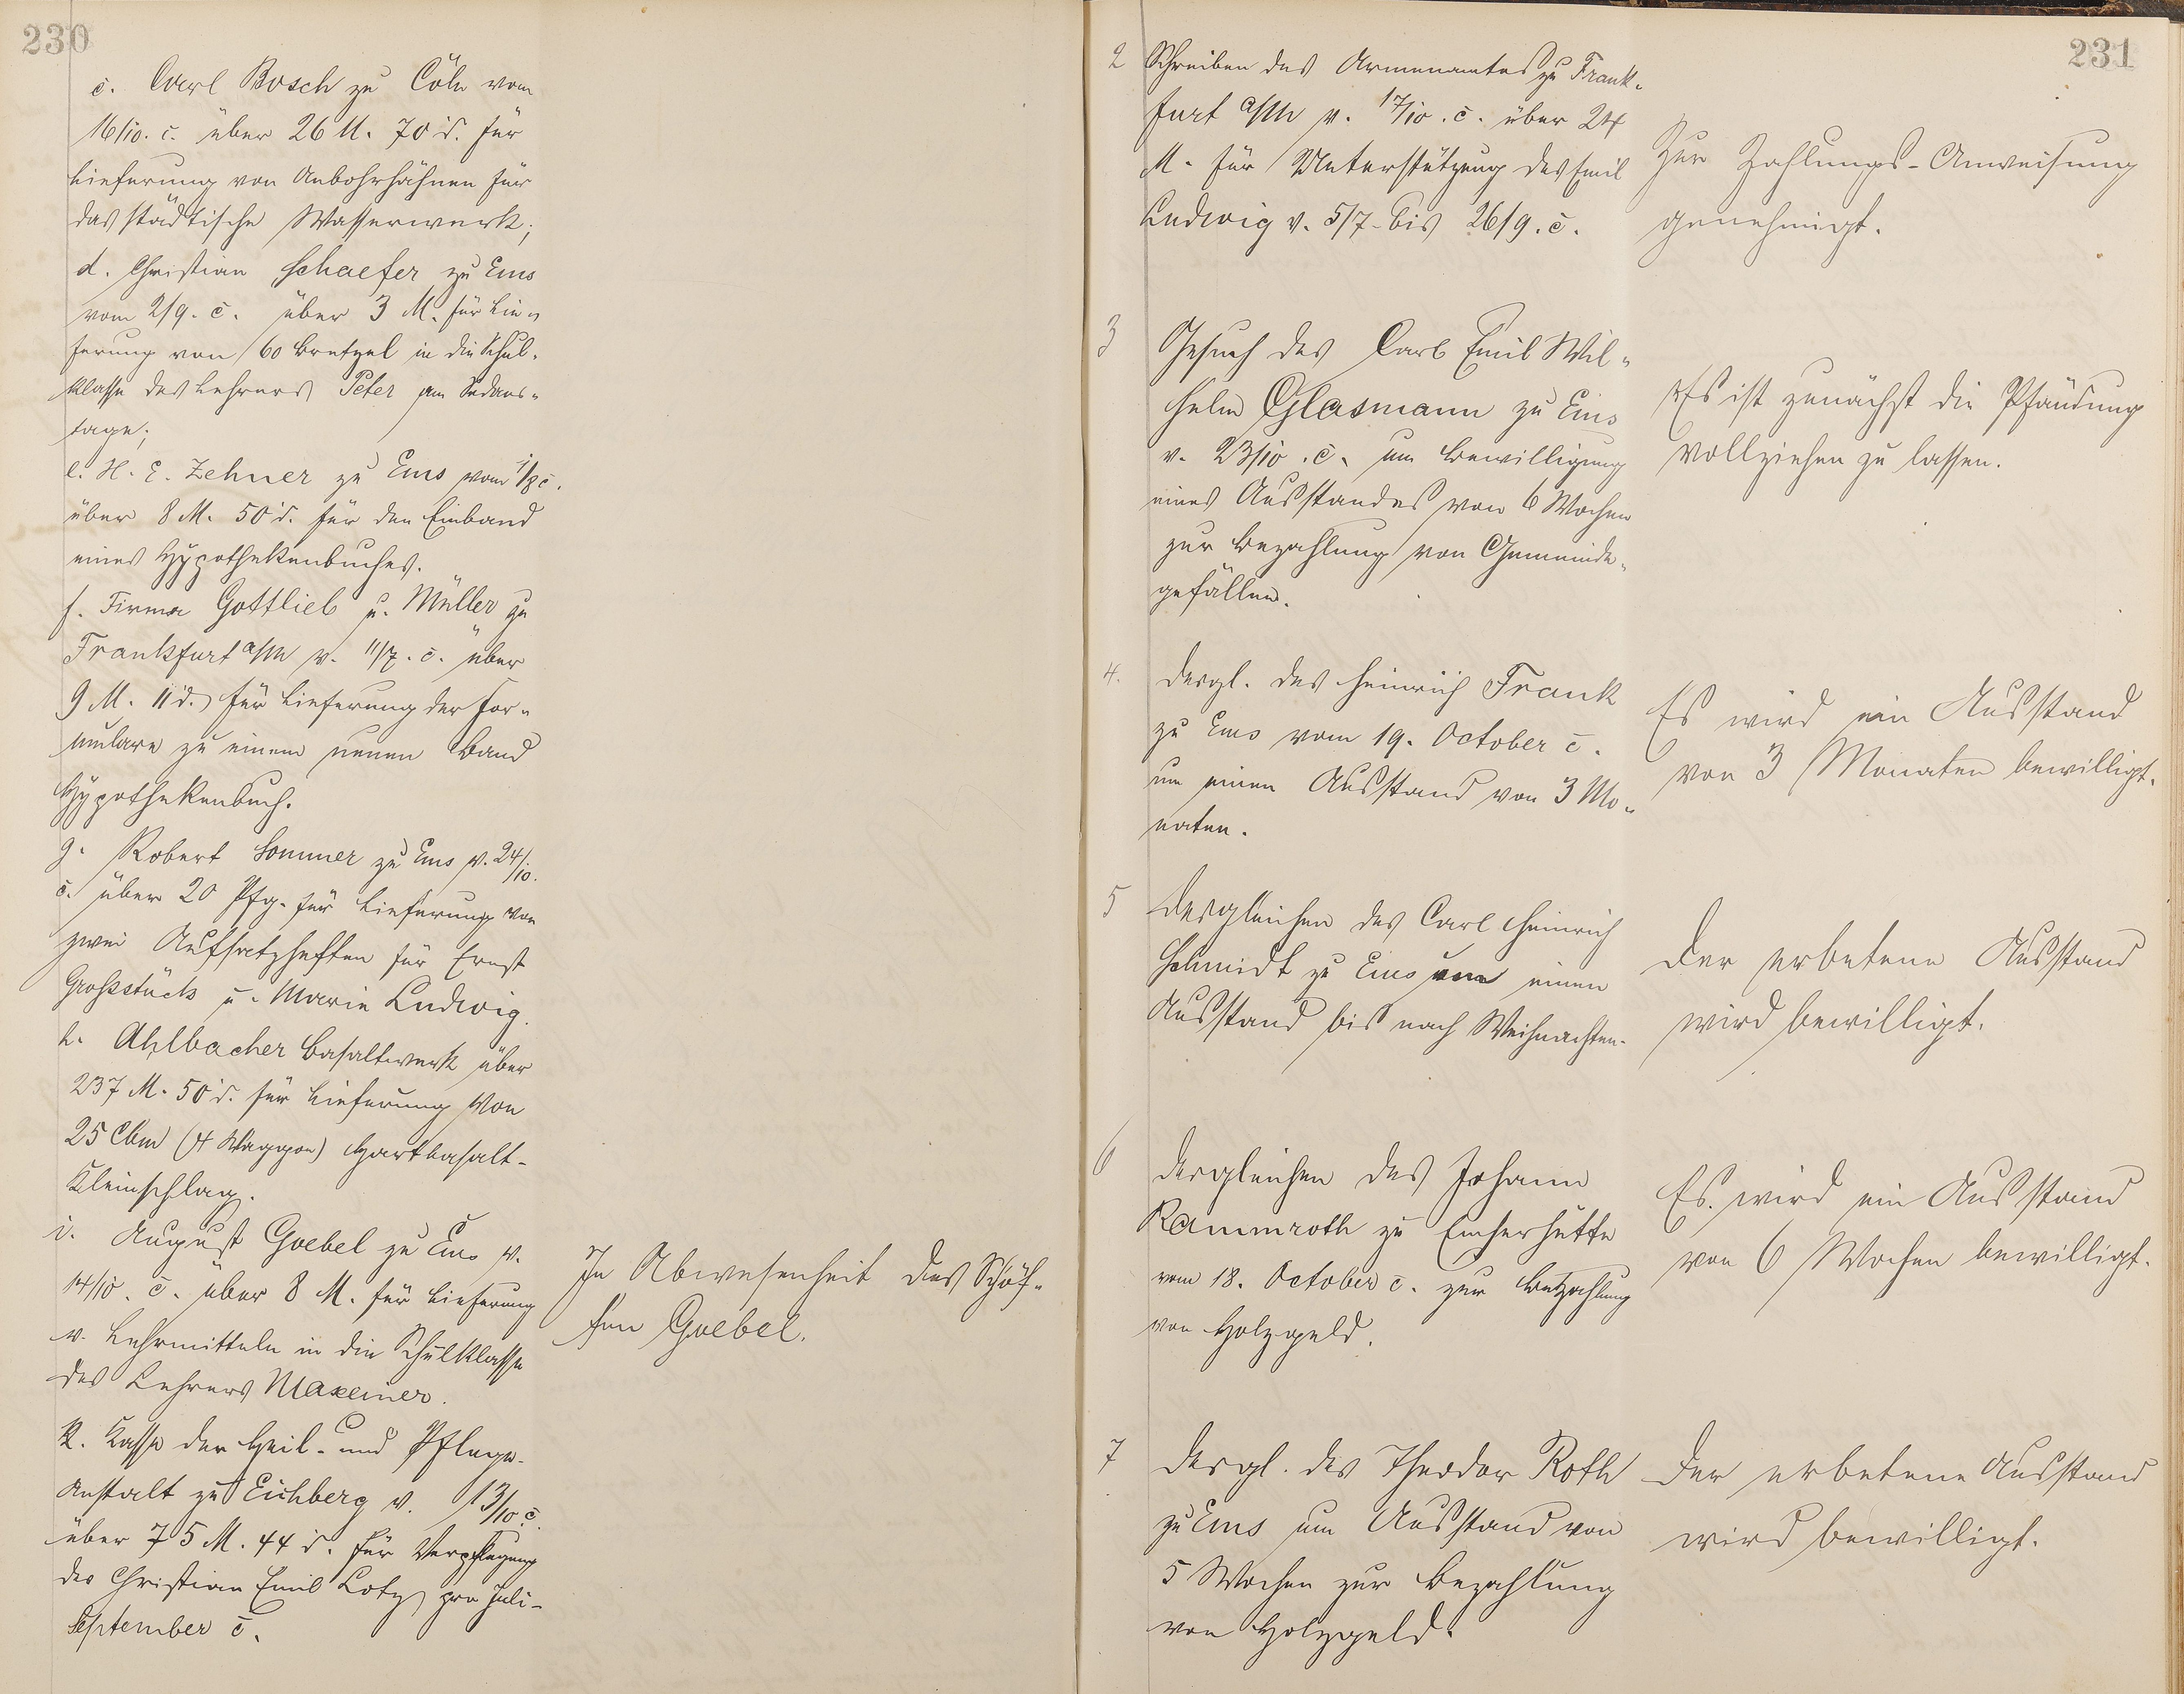 230
c. Carl Bosch zu Cöln vom
16/10. c. über 26 M. 70 d. für
Lieferung von Anbohrhähnen für
das städtische Wasserwerk;
d. Christian Schaefer zu Ems
vom 2/9. c. über 3 M. für Lie=
ferung von 60 Bretzel in die Schul=
klasse des Lehrers Peter am Sedans=
tage;
e. H. E. Zehner zu Ems vom 1/8 c.
über 8 M. 50 d. für den Einband
eines Hypothekenbuches.
f. Firma Gottlieb u. Müller zu
Frankfurt a/M v. 11/7. c. über
9 M. 11 d. für Lieferung der For=
mulare zu einem neuen Band
Hypothekenbuch.
g. Robert Sommer zu Ems v. 24/10.
c. über 20 Pfg. für Lieferung von
zwei Aufsatzheften für Ernst
Großstück u. Marie Ludwig.
h. Ahlbacher Basaltwerk über
237 M. 50 d. für Lieferung von
25 Cbm (4 Waggon) Hartbasalt-
Kleinschlag.
i. August Goebel zu Ems v.
14/10. c. über 8 M. für Lieferung
v. Lehrmitteln in die Schulklasse
des Lehrers Maxeiner.
In Abwesenheit des Schöf=
fen Goebel.
k. Kasse der Heil- und Pflege-
Anstalt zu Eichberg v. 13/10. c.
über 75 M. 44 d. für Verpflegung
des Christian Emil Lotz pro Juli-
September c.
231
2 Schreiben des Armenamtes zu Frank=
furt a/M v. 17/10. c. über 24
M. für Unterstützung des Emil
Ludwig v. 5/7. bis 26/9. c.
Zur Zahlungs-Anweisung
genehmigt.
3 Gesuch des Carl Emil Wil=
helm Glasmann zu Ems
v. 23/10. c. um Bewilligung
eines Ausstandes von 6 Wochen
zur Bezahlung von Gemeinde=
gefällen.
Es ist zunächst die Pfändung
vollziehen zu lassen.
4. Desgl. des Heinrich Frank
zu Ems vom 19. October c.
um einen Ausstand von 3 Mo=
naten.
Es wird ein Ausstand
von 3 Monaten bewilligt.
5 Desgleichen des Carl Heinrich
Schmidt zu Ems um einen
Ausstand bis nach Weihnachten.
Der erbetene Ausstand
wird bewilligt.
6 Desgleichen des Johann
Rammroth zu Emserhütte
vom 18. October c. zur Bezahlung
von Holzgeld.
Es wird ein Ausstand
von 6 Wochen bewilligt.
7 Desgl. des Theodor Roth
zu Ems um Ausstand von
5 Wochen zur Bezahlung
von Holzgeld.
Der erbetene Ausstand
wird bewilligt.